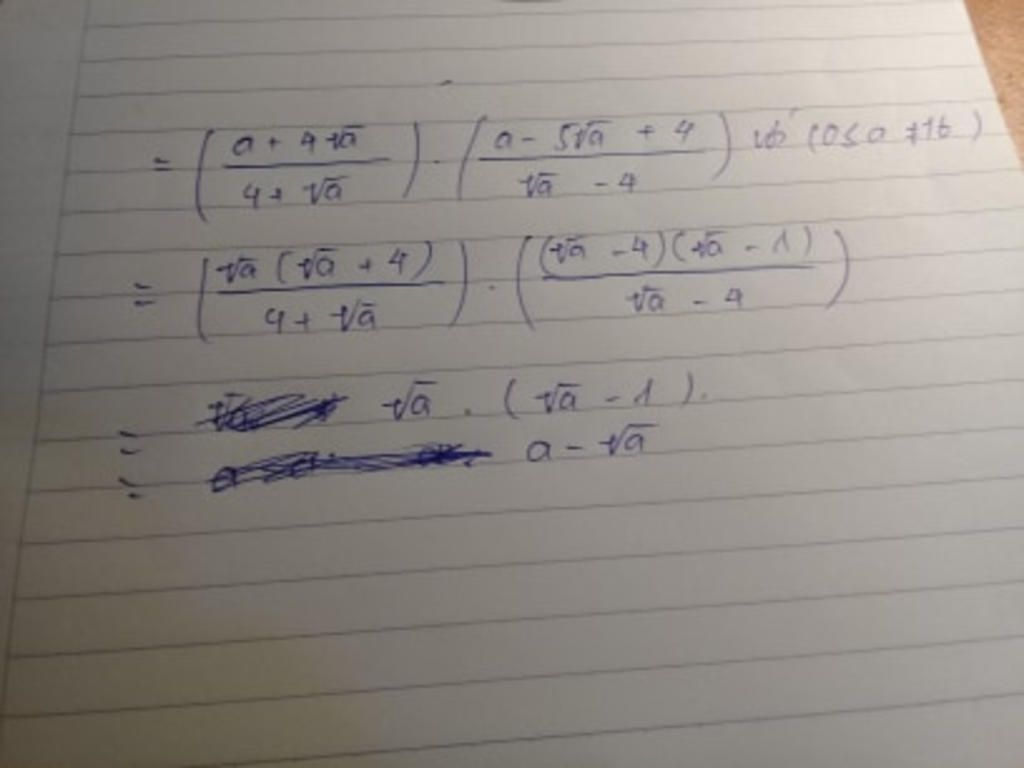 = ( (a + 4√a) / (4 + √a) ) . ( (a - 5√a + 4) / (√a - 4) ) với (0 ≤ a ≠ 16)
= ( √a (√a + 4) / (4 + √a) ) . ( (√a - 4)(√a - 1) / (√a - 4) )
= √a . (√a - 1).
= a - √a